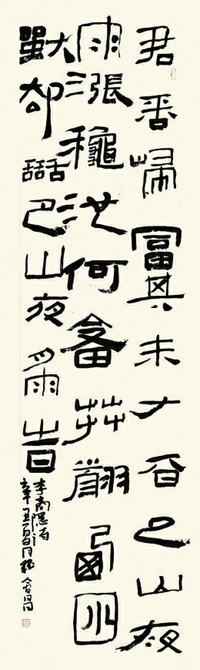 君問歸期未有期巴山夜
雨漲龝池何當共翦西窗
燭却話巴山夜雨時
李商隱
辛丑